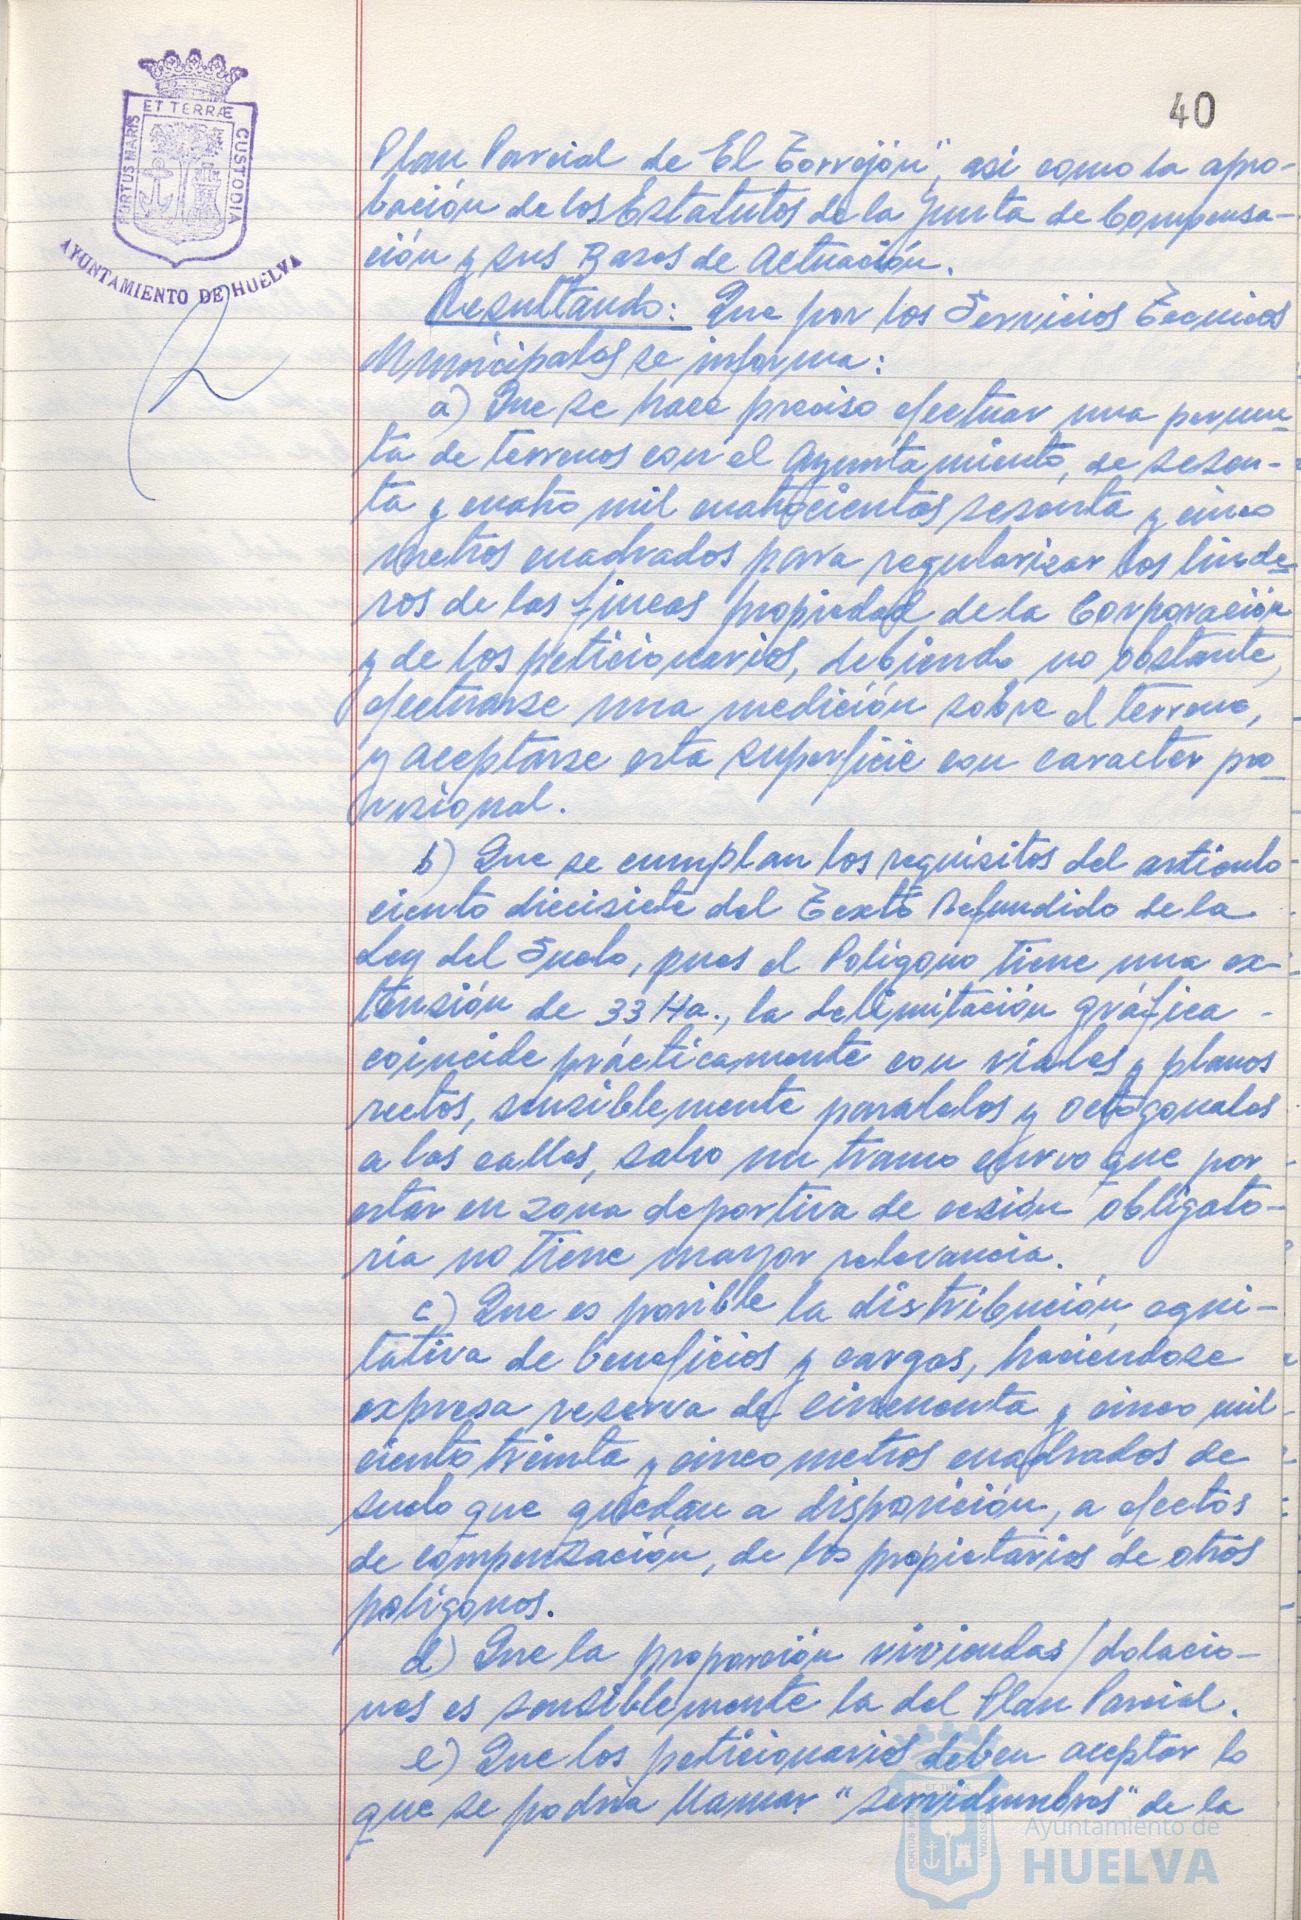 40
ET TERRÆ
PORTUS MARIS
CUSTODIA
AYUNTAMIENTO DE HUELVA
Plan Parcial de "El Torrejón", asi como la apro-
bación de los Estatutos de la Junta de Compensa-
ción y sus Bases de Actuación.
Resultando: Que por los Servicios Tecnicos
Municipales se informa:
a) Que se hace preciso efectuar una permu-
ta de terrenos con el Ayuntamiento, de sesen-
ta y cuatro mil cuatrocientos sesenta y cinco
metros cuadrados para regularizar los linde-
ros de las fincas propiedad de la Corporación
y de los peticionarios, debiendo no obstante,
efectuarse una medición sobre el terreno,
y aceptarse esta superficie con caracter pro-
visional.
b) Que se cumplan los requisitos del articulo
ciento diecisiete del Texto Refundido de la
Ley del Suelo, pues el Poligono tiene una ex-
tensión de 33 Ha., la delimitación gráfica -
coincide prácticamente con viales y planos
rectos, sensiblemente paralelos y octogonales
a las calles, salvo un tramo curvo que por
estar en zona deportiva de cesión obligato-
ria no tiene mayor relevancia.
c) Que es posible la distribución equi-
tativa de beneficios y cargas, haciendose
expresa reserva de cincuenta y cinco mil
ciento treinta y cinco metros cuadrados de
suelo que quedan a disposición, a efectos
de compensación, de los propietarios de otros
poligonos.
d) Que la proporción viviendas/dotacio-
nes es sensiblemente la del Plan Parcial.
e) Que los peticionarios deben aceptar lo
que se podria llamar "servidumbres" de la
ET TERRÆ
CUSTODIA
Ayuntamiento de
HUELVA